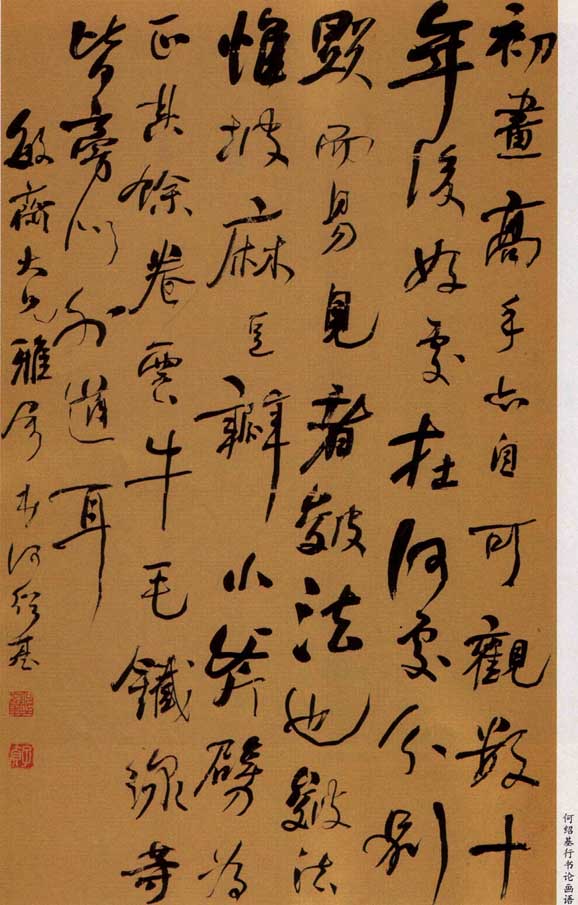 初畫高手亦自可觀數十
年後好處在何處分別
顯而易見者皴法也皴法
惟披麻豆瓣小斧劈為
正其餘卷雲牛毛鐵線等
皆旁門外道耳
敏齋大兄雅屬弟何紹基
何绍基行书论画语